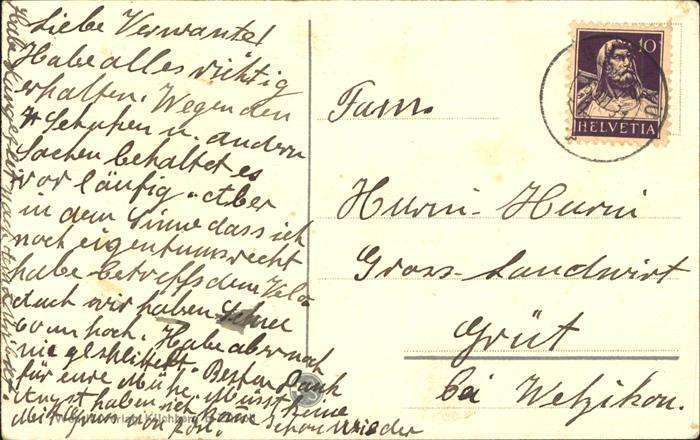 Liebe Verwante!
Habe alles richtig
erhalten. Wegen den
4 Schuhen u. andern
Sachen behaltet es
vorläufig. Aber
in dem Sinne dass ich
noch eigentumsrecht
habe betreffs dem Velo
doch wir haben Schnee
60 cm hoch. Habe aber noch
nie geschlittelt. Besten Dank
für eure Mühe. Müsst keine
Angst haben ich
Mit Gruss von
schon wieder
Fam.
Hurni-Hurni
Gross-Landwirt
Grüt
bei Wetzikon.
10
HELVETIA